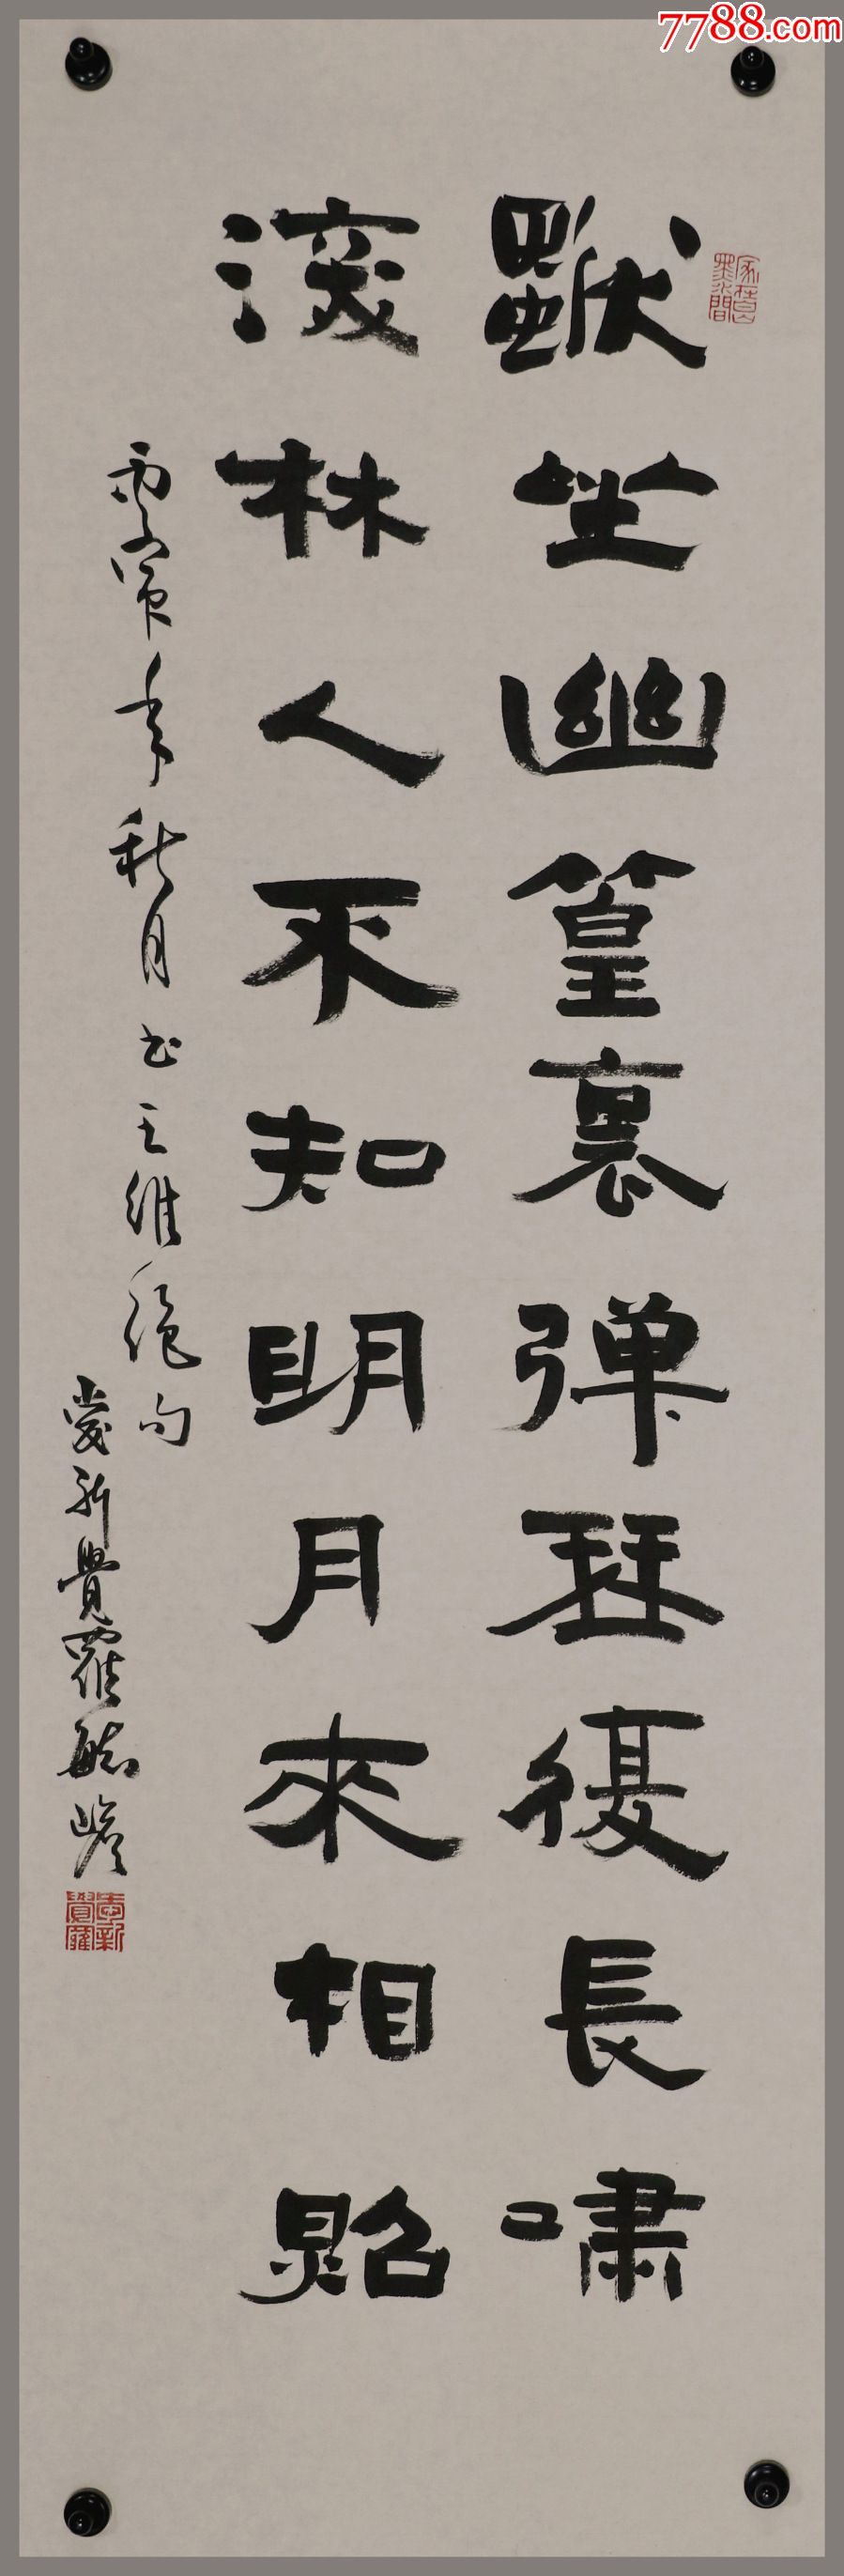 7788.com
獨坐幽篁裏弹琴復長嘯
深林人不知明月來相照
丙寅年秋月书王維絕句
愛新覺羅毓嶦
愛新覺羅